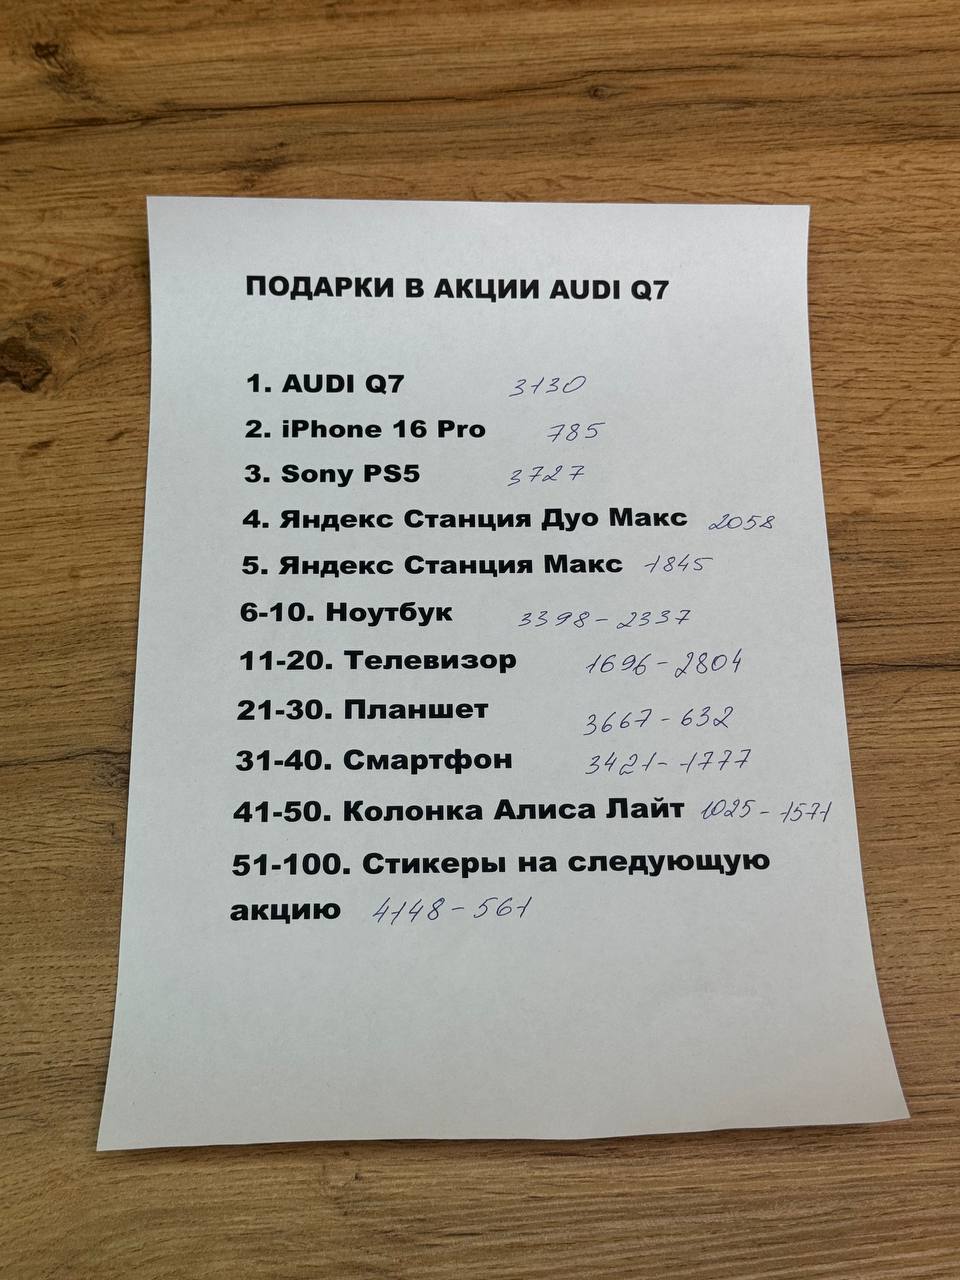 ПОДАРКИ В АКЦИИ AUDI Q7
1. AUDI Q7 3130
2. iPhone 16 Pro 785
3. Sony PS5 3727
4. Яндекс Станция Дуо Макс 2058
5. Яндекс Станция Макс 1845
6-10. Ноутбук 3398 - 2337
11-20. Телевизор 1696 - 2804
21-30. Планшет 3667 - 632
31-40. Смартфон 3421 - 1777
41-50. Колонка Алиса Лайт 1025 - 1571
51-100. Стикеры на следующую
акцию 4148 - 561